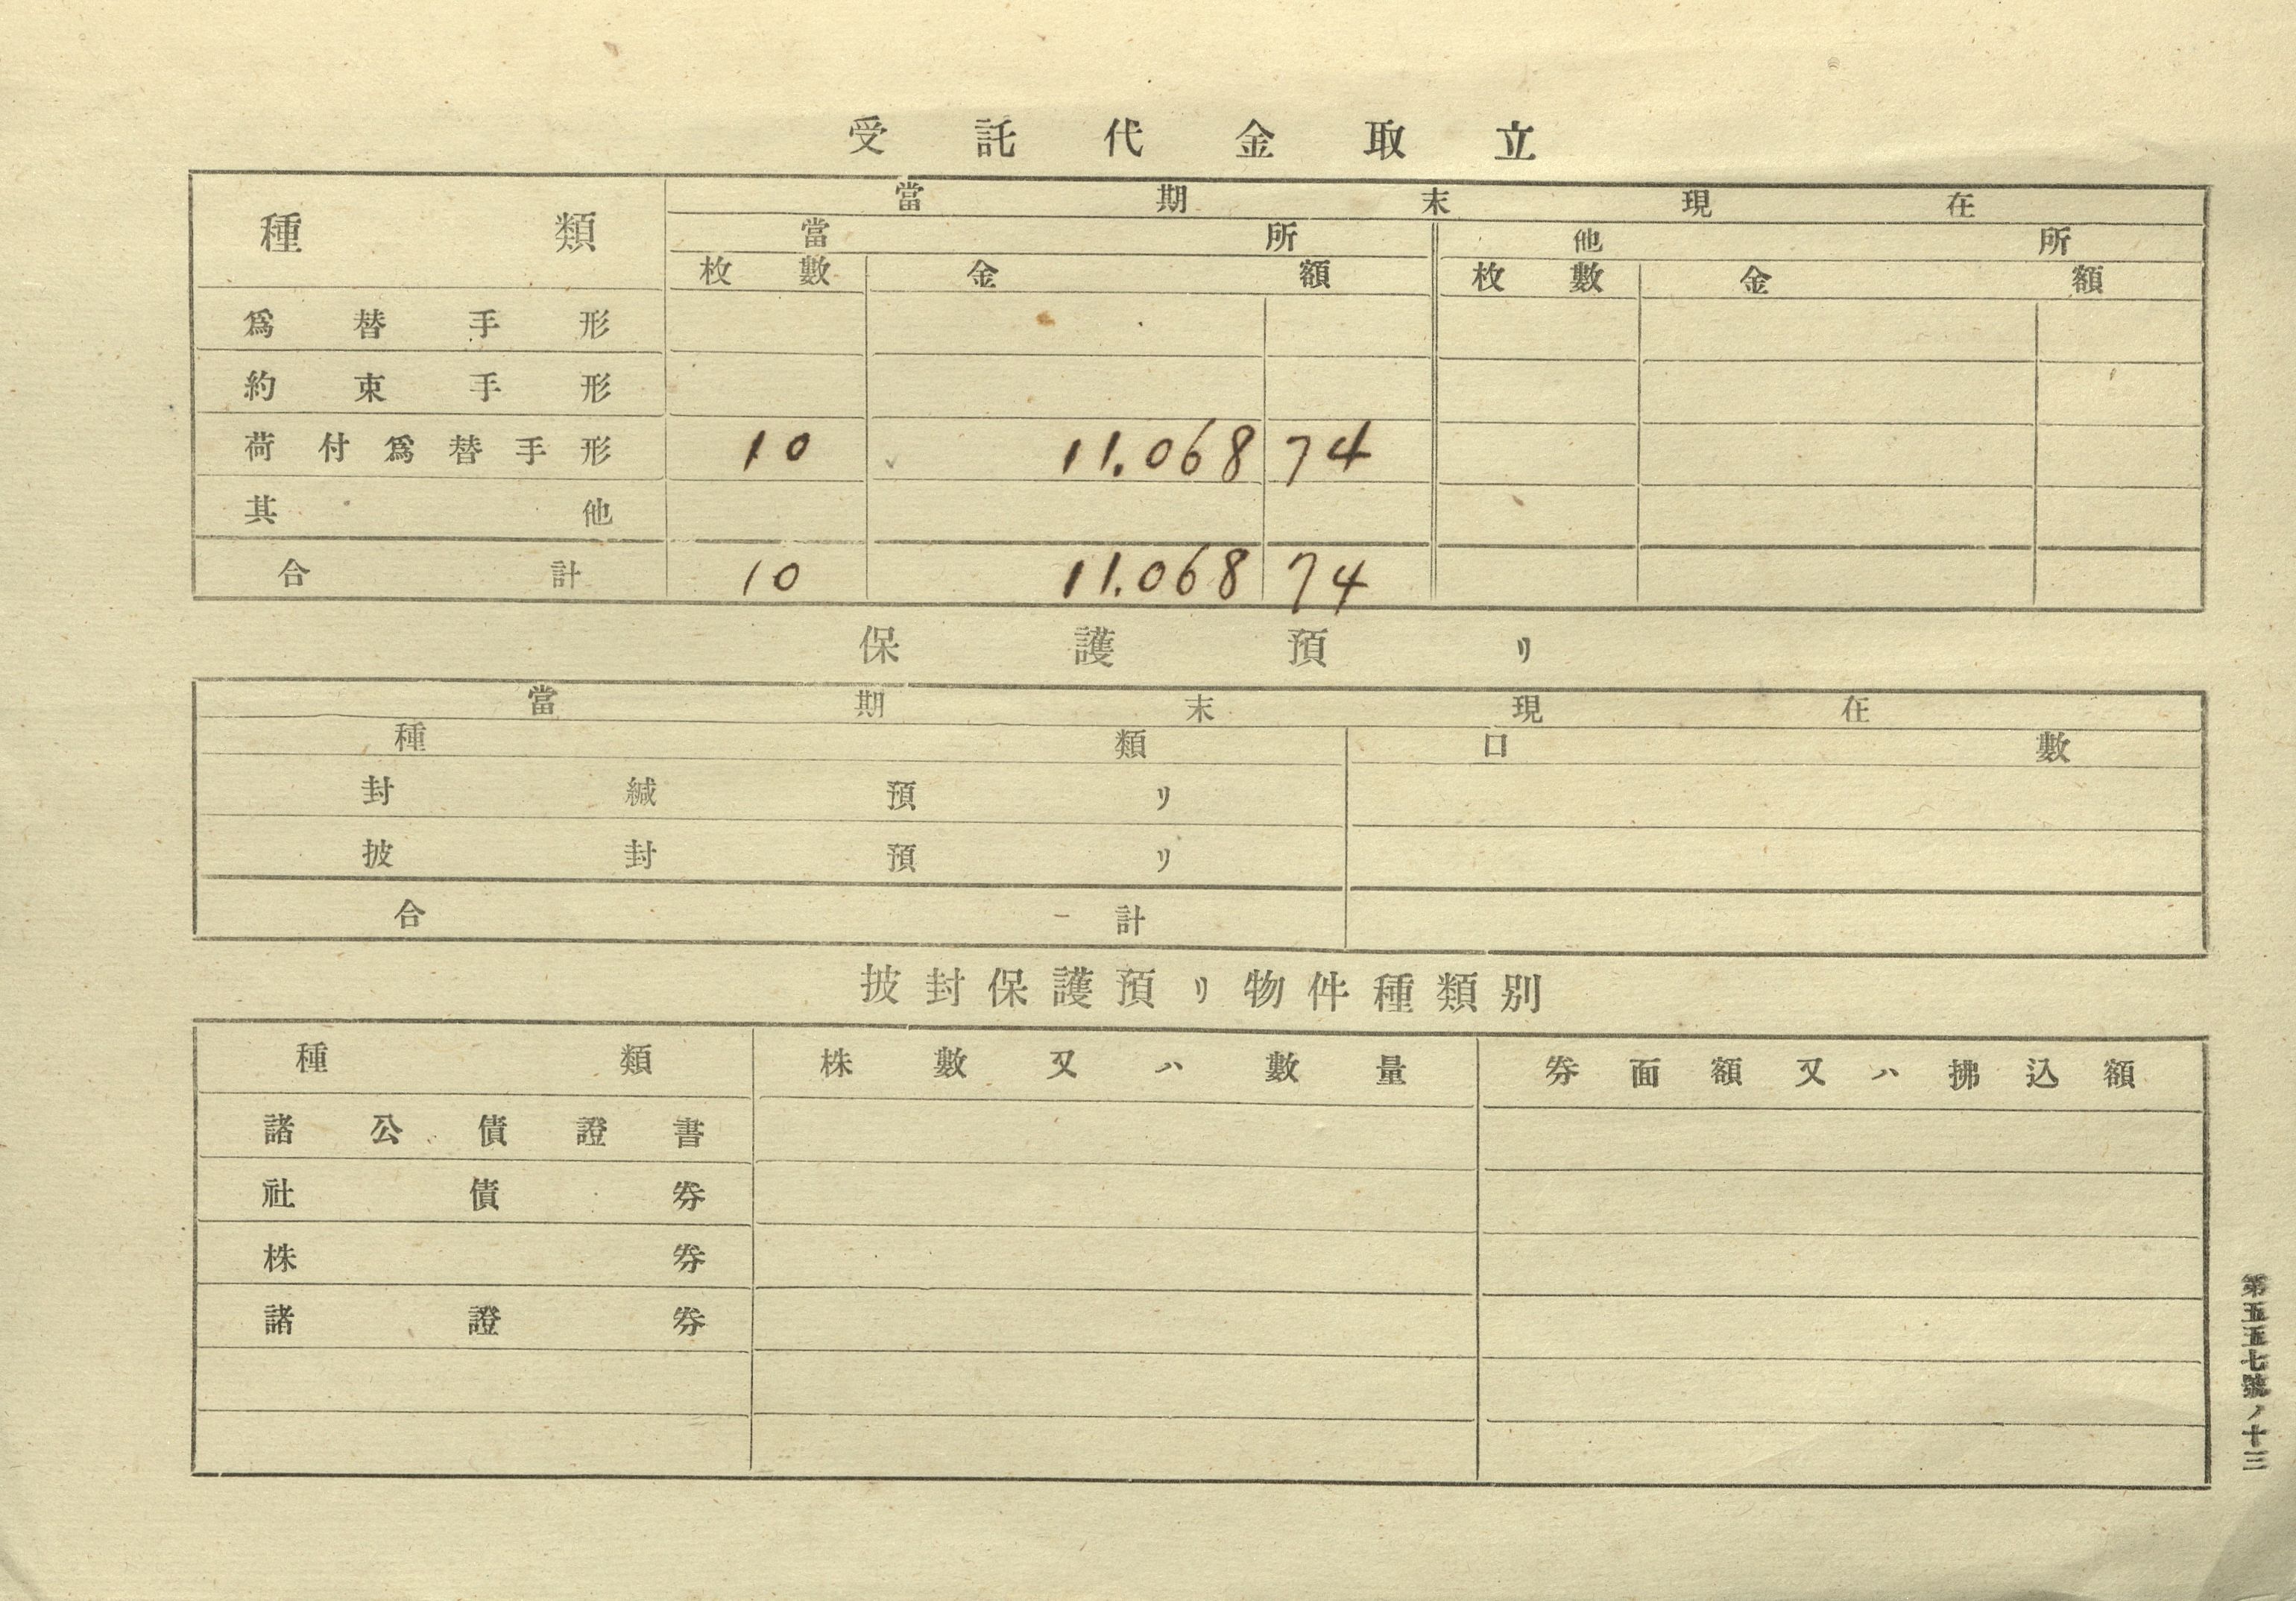 受託代金取立
種類 當期末現在
當所 他所
枚數 金額 枚數 金額
爲替手形
約束手形
荷付爲替手形 10 11.068 74
其他
合計 10 11.068 74
保護預リ
當期末現在
種類 口數
封緘預リ
披封預リ
合計
披封保護預リ物件種類別
種類 株數又ハ數量 券面額又ハ拂込額
諸公債證書
社債券
株券
諸證券
第五五七號ノ十三